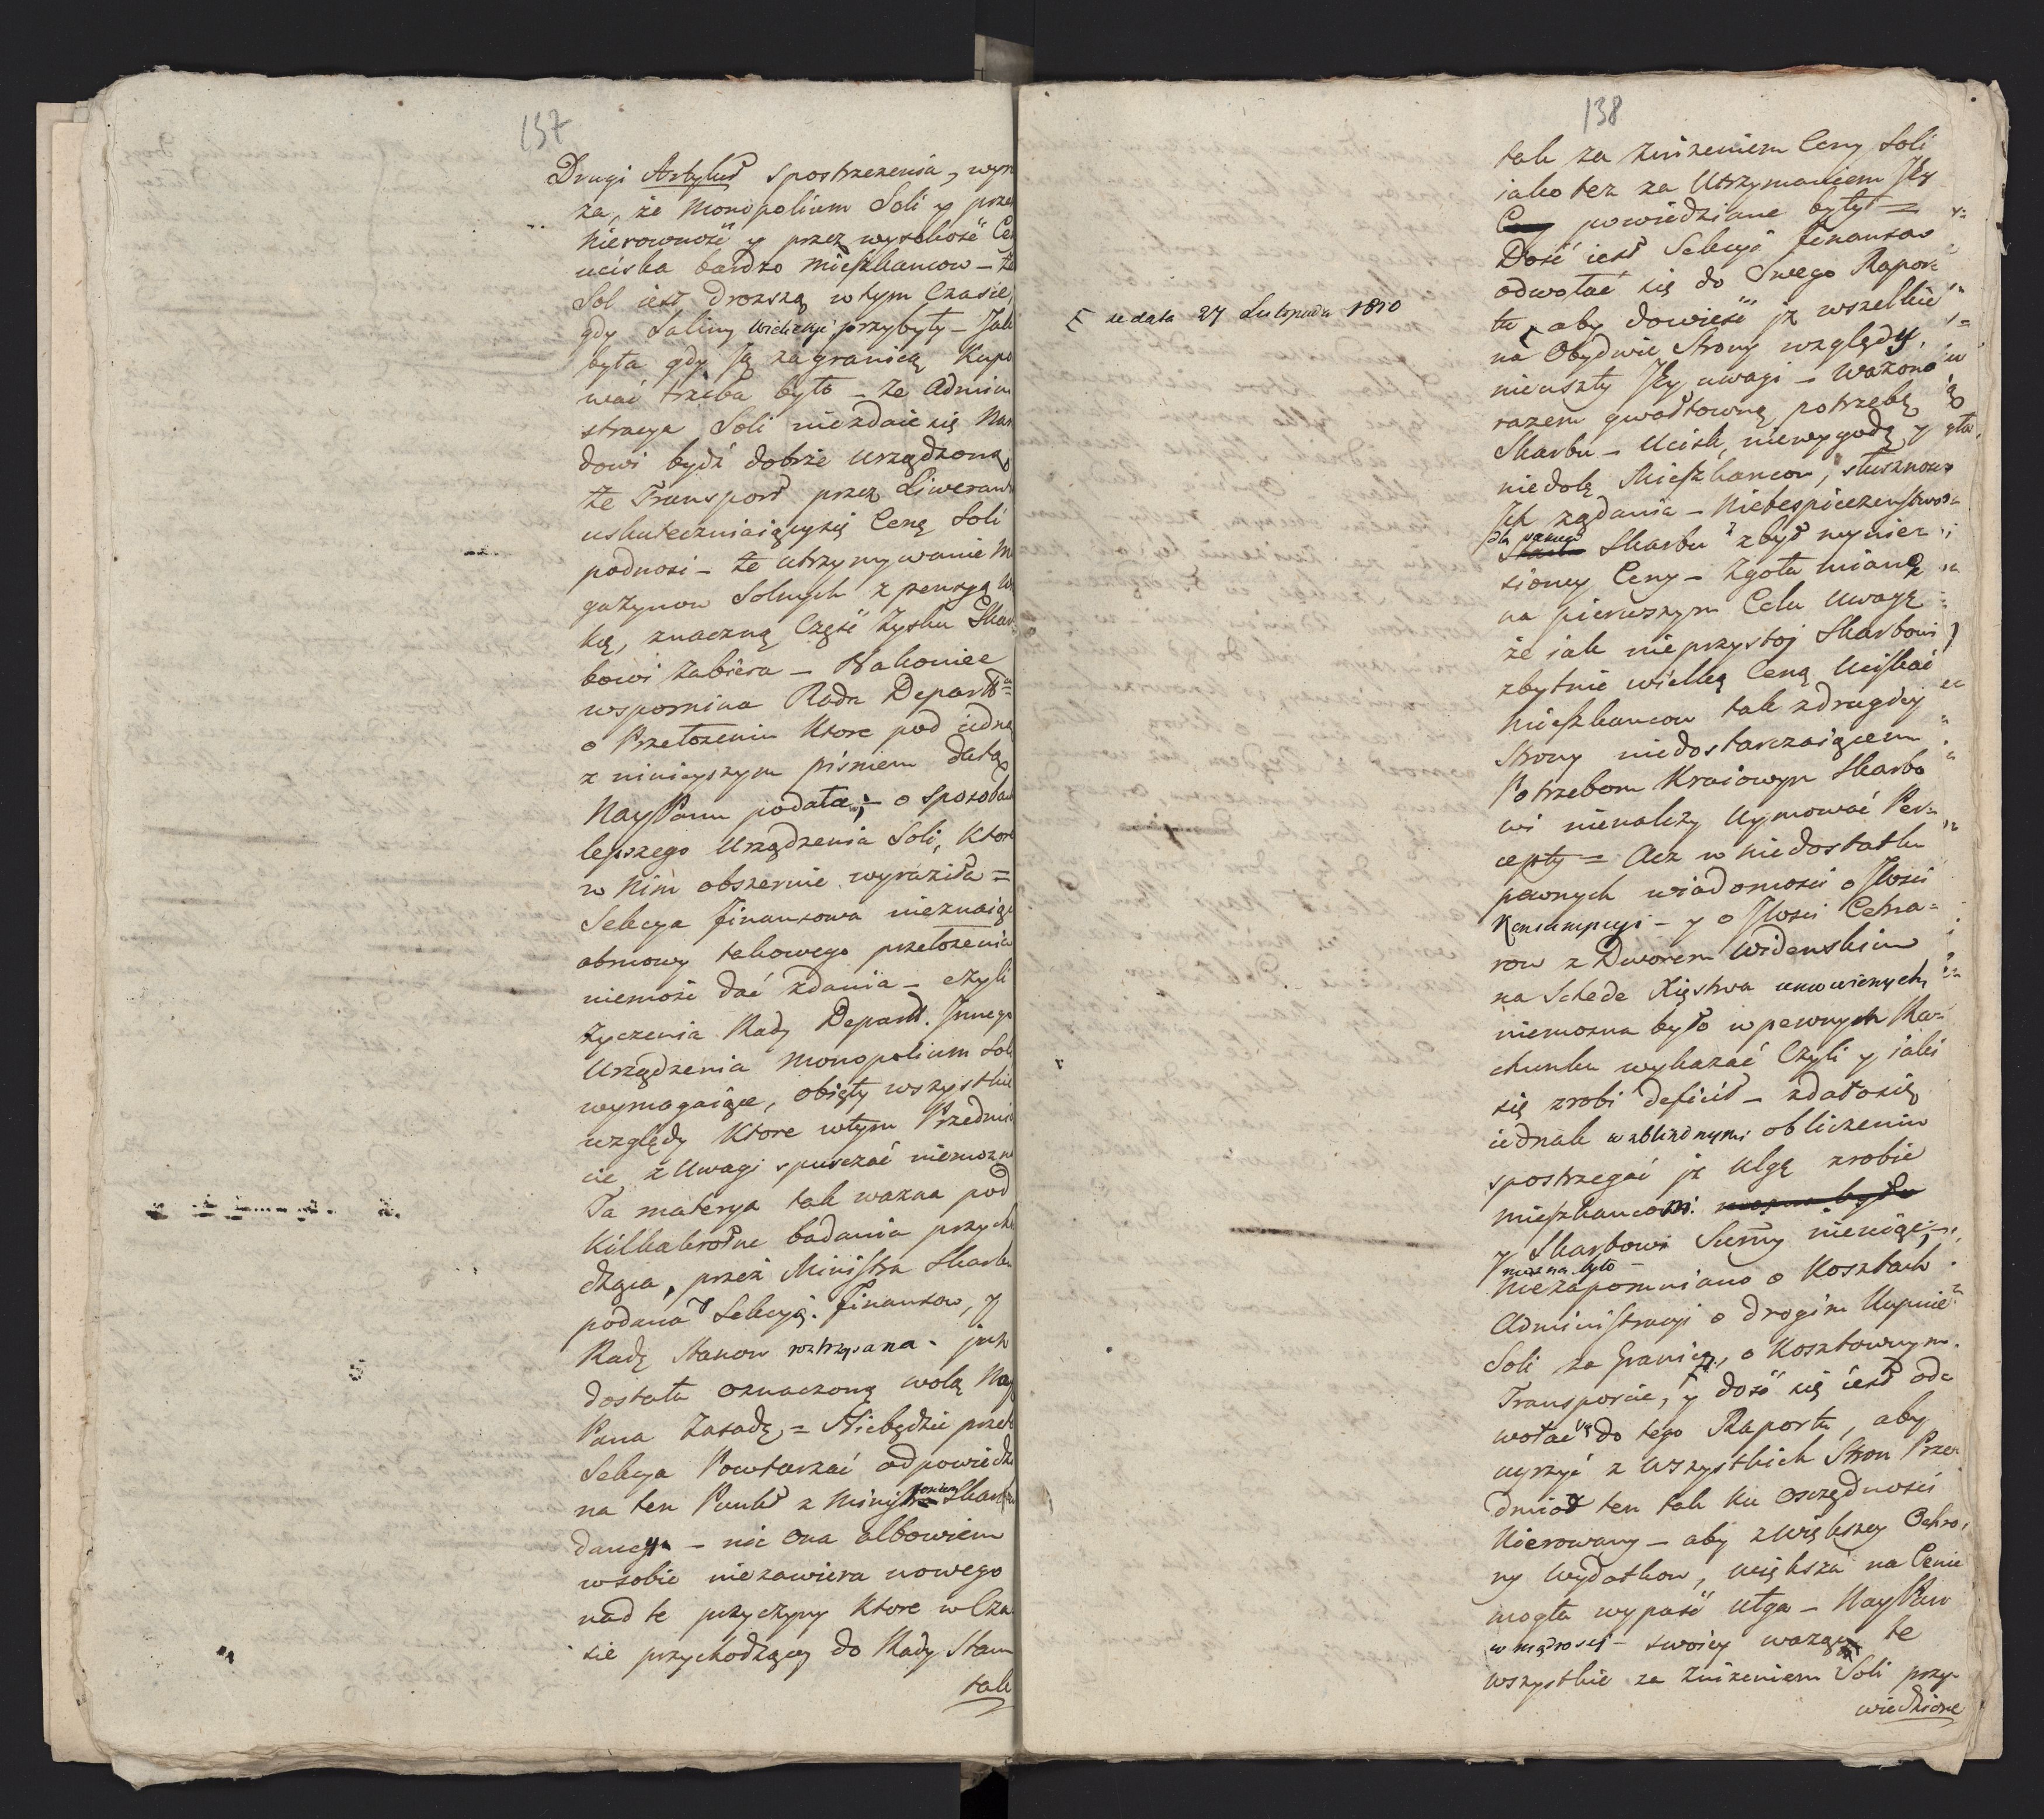 137
Drugi Artykuł spostrzezenia, wyra
za, że Monopolium Soli y przez
Nierowność y przez wysokość Ce
uciska bardzo Mieszkancow – że
Sol iest drozszą w tym Czasie,
gdy Saliny Wieliczki przybyły – Jak
była gdy Ją zagranicą Kupo
wać trzeba było – że Admini
stracya Soli niezdaie się Naro
dowi bydź dobrze urządzoną
że Transport przez Liweranta
uskuteczniaiący się Cenę Soli
podnosi – że utrzymywanie Ma
gazynow Solnych z pensyą
ką, znaczną Część Zysku Skar
bowi zabiera – Nakoniec
wspomina Rada Departt
o Przełozeniu Ktore pod iedną
z ninieyszym pismem datą
NayPanu podała – o sposobach
lepszego Urządzenia Soli, Ktore
w Nim obszernie wyraziła =
Sekcya finansowa nieznaiąc
osnowy takowego przełozenia
niemoże dać zdania – czyli
życzenia Rady Departt. Innego
Urządzenia Monopolium Soli
wymagaiące, obięły wszystkie
względy Ktore wtym Przedmio
cie z Uwagi spuszczać niemozna
Ta materya tak wazna pod
Kilkakrotne badania przycho
dząca, przez Ministra Skarbu
podana Sekcyi finansow, y
Radę Stanow roztrząsana – juz
dostała oznaczoną wolą Nay
Pana Zasadę, = Niebędzie przeto
Sekcya Powtarzać odpowiedzi
na ten Punkt z Ministerium Skarbu
daney – nic Ona albowiem
w sobie niezawiera nowego
nad te przyczyny Ktore w Cza
sie przychodzącey do Rady Stanu
tak
138
tak za zniżeniem Ceny Soli
jako tez za Utrzymaniem Jey
powiedziane były =
Dość iest Sekcyi finansow
odwołać się do Swego Rapor-
tu [ aby dowieść jż wszelkie
[ z data 27 Listopada 1810
na Obydwie Strony względy,
nieuszły Jey uwagi – Wazono
razem gwałtowną potrzebę
Skarbu – Ucisk, niewygodę y
niedolę Mieszkancow, słuszność
Ich ządania – Niebespieczenstwo
dla samego Skarbu zbyt wynie-
sioney Ceny – Zgoła miano
na pierwszym Celu Uwagę
że jak nieprzystoj Skarbowi
zbytnie wielką Ceną Uciskać
Mieszkancow tak zdrugiey
Strony niedostarczaiącemu
Potrzebom Kraiowym Skarbo
wi nienalezy Uymować Per-
cepty = Acz w Niedostatku
pewnych wiadomosci o Ilosci
Konsumpcyi – y o Ilosci Cetna-
row z Dworem Widenskim
na Schede Xięstwa umowionych
niemozna było w pewnych Ra-
chunku wykazać Czyli y jaki
się zrobi deficit – zdało się
iednak w zbliżonym obliczeniu
spostrzegać jż Ulgę zrobić
Mieszkancom
y Skarbowi Summy nieuiąć –
mozna było
Niezapomniano o Kosztach
Administracyi o drogim Kupnie
Soli za Granicą, o Kosztownym
Transporcie, y dość się iest od-
wołać do tego Raportu, aby
uyrzyć z Wszystkich Stron Prze-
dmiot ten tak ku oszczędności
Kierowany – aby zwiększey Ochro-
ny Wydatkow, większa na Cenie
mogła wypaść ulga – NayPan
w mądrosci swoiey waząc te
wszystkie za Zniżeniem Soli przy-
wiedzione